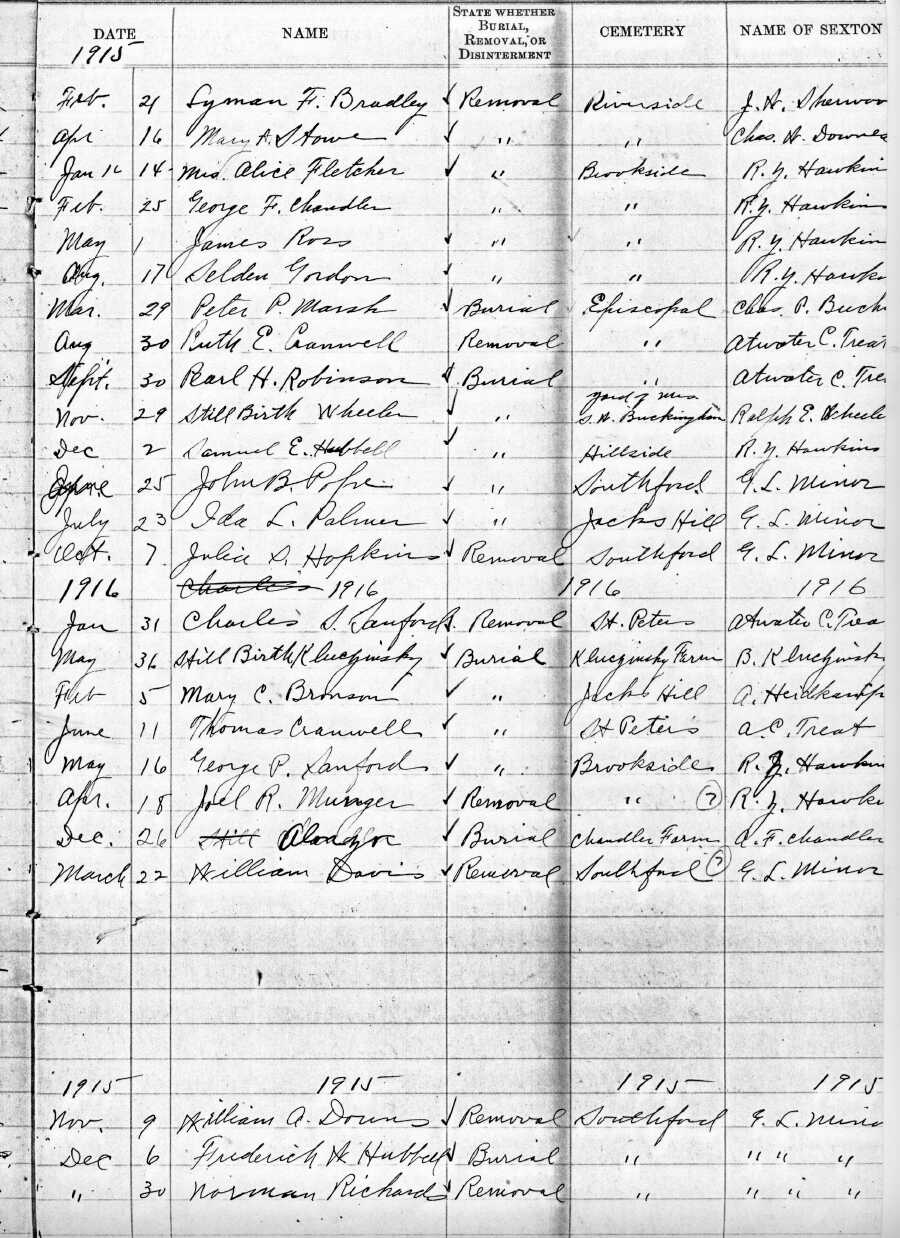 DATE NAME STATE WHETHER BURIAL, REMOVAL, OR DISINTERMENT CEMETERY NAME OF SEXTON
1915
Feb. 21 Lyman F. Bradley Removal Riverside J. H. Sherwoo
Apr 16 Mary A. Stowe " " Chas. H. Downes
Jan 14 Mrs. Alice Fletcher " Brookside R. Y. Hawkin
Feb. 25 George F. Chandler " " R. Y. Hawkins
May 1 James Ross " " R. Y. Hawkin
Aug. 17 Selden Gordon " " R. Y. Hawk
Mar. 29 Peter P. Marsh Burial Episcopal Chas. P. Buck
Aug 30 Ruth E. Cranwell Removal " Atwater C. Treat
Sept. 30 Pearl H. Robinson Burial " Atwater C. Tre
Nov. 29 Still Birth Wheeler " yard of Mrs S. W. Buckingham Ralph E. Wheele
Dec 2 Samuel E. Hubbell " Hillside R. Y. Hawkins
25 John B. Pope " Southford. G. L. Minor
July 23 Ida L. Palmer " Jacks Hill G. L. Minor
Oct. 7 Julia S. Hopkins Removal Southford G. L. Minor
1916 Charles 1916 1916 1916
Jan 31 Charles S. Sanford Removal St. Peters Atwater C. Trea
May Still Birth Kluczinsky Burial Kluczinsky Farm B. Kluczinsk
Feb 5 Mary C. Bronson " Jacks Hill A. Heidkamp
June 11 Thomas Cranwell " St Peters A. C. Treat
May 16 George P. Sanford " Brookside R. Y. Hawkin
Apr. 18 Joel R. Munger Removal " (7) R. Y. Hawk
Dec. 26 Still Burial Chandler Farm A. F. Chandler
March 22 William Davis Removal Southford (7) G. L. Minor
1915 1915 1915 1915
Nov. 9 William A. Downs Removal Southford G. L. Mino
Dec 6 Frederick W Hubbell Burial " " " "
" 30 Norman Richards Removal " " " "